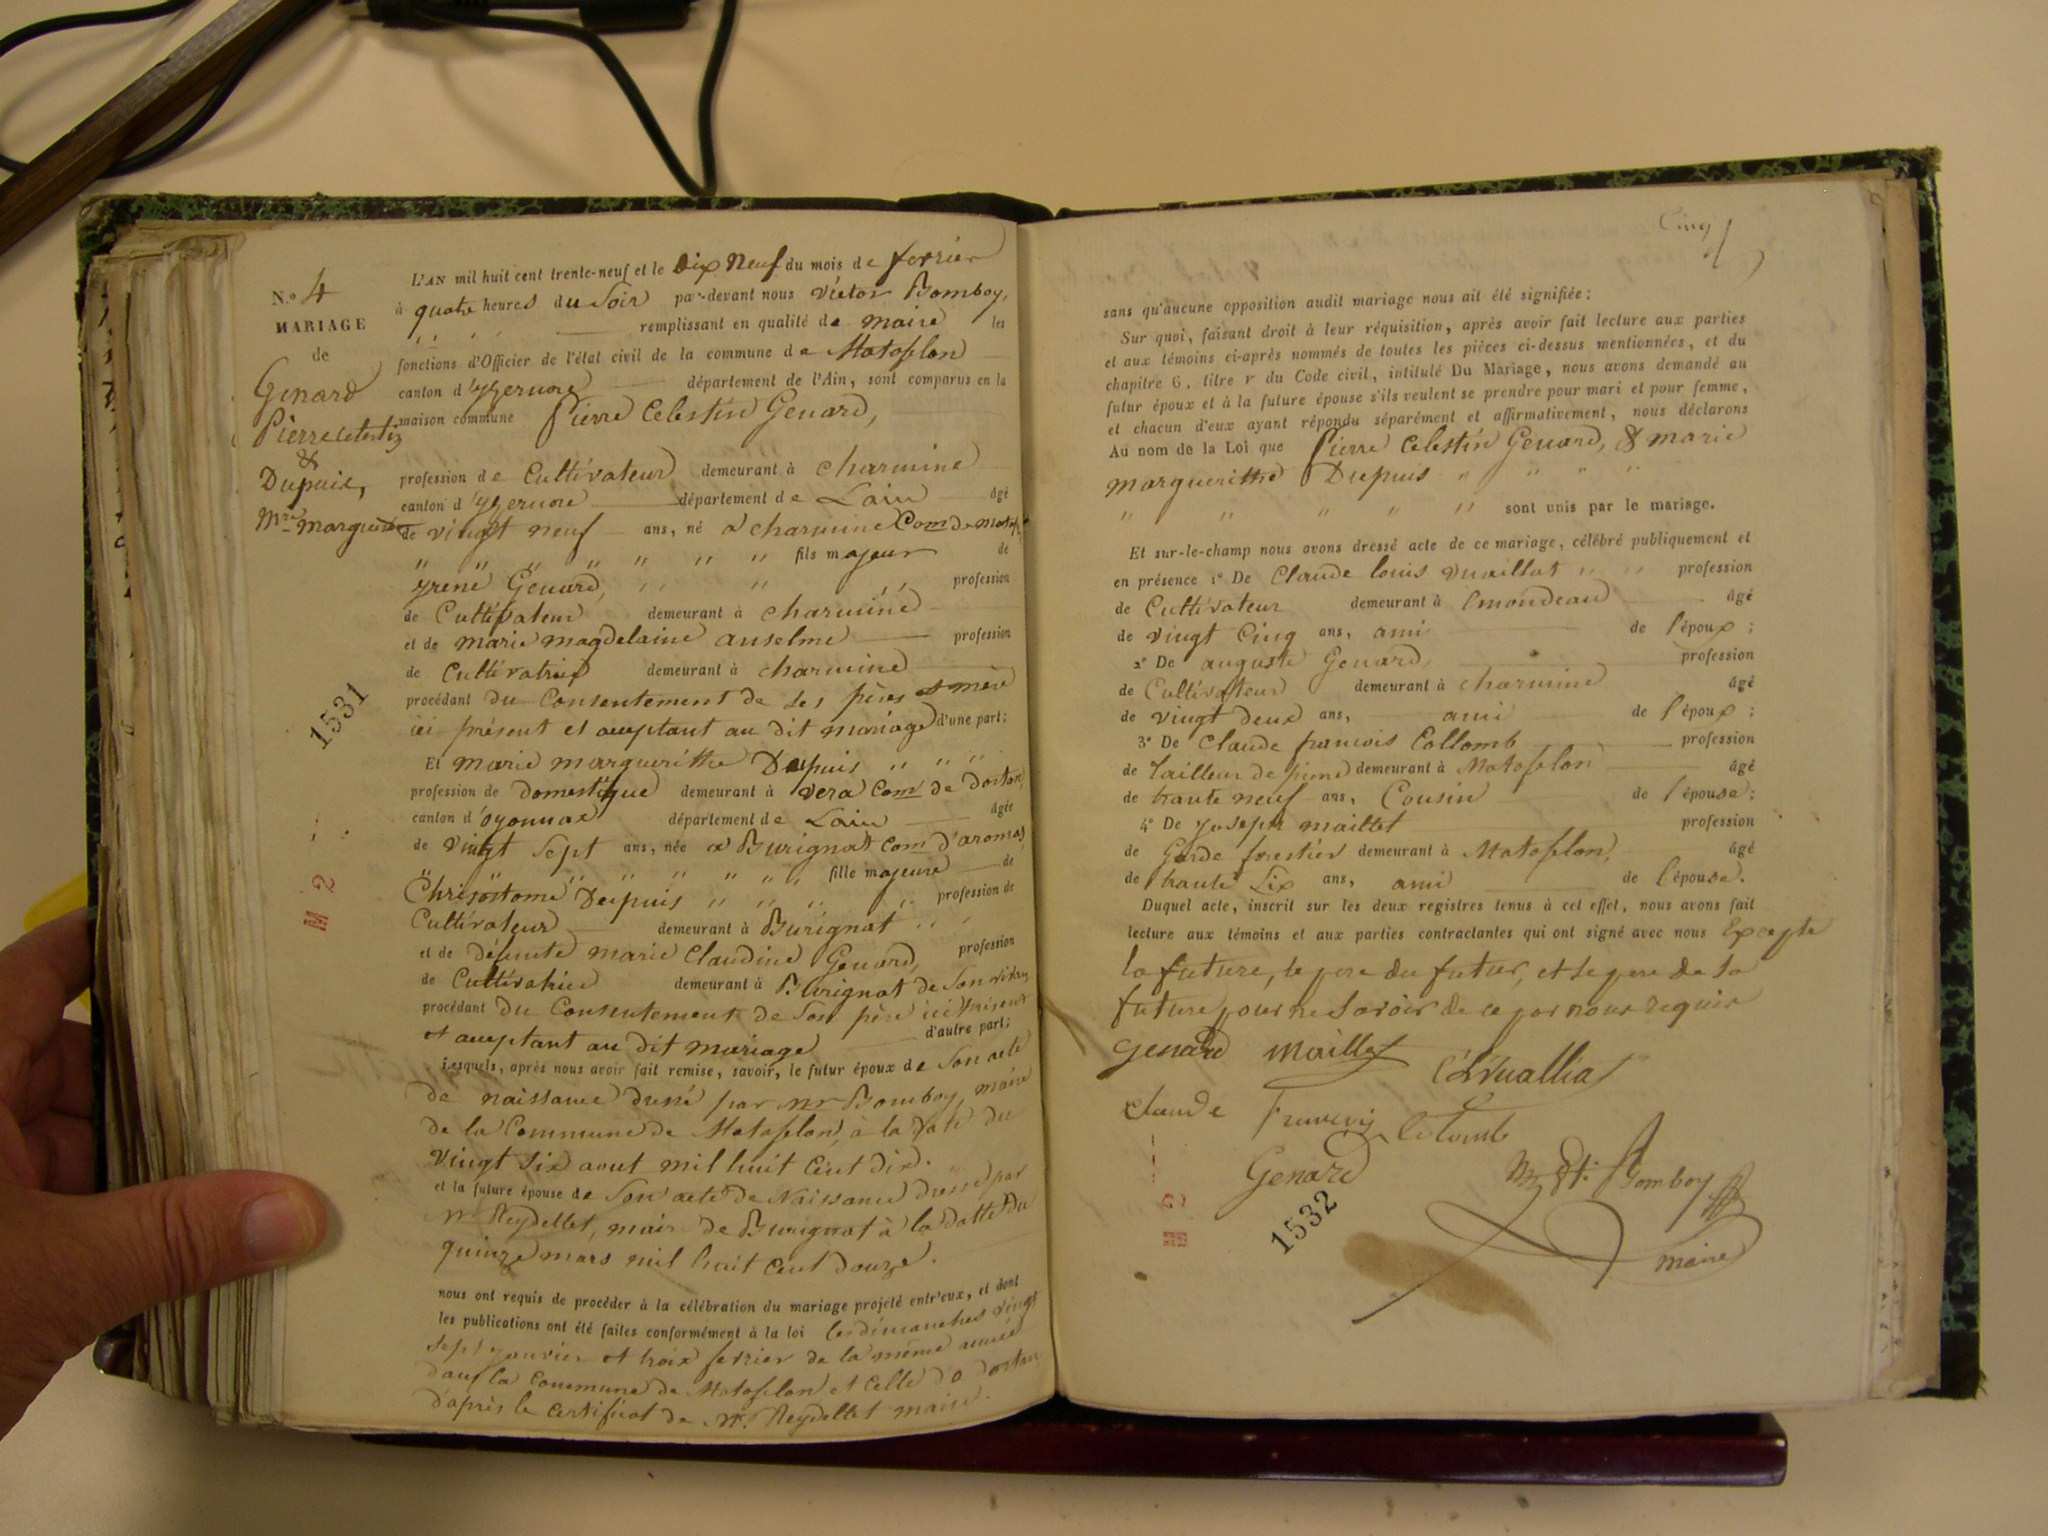 N.o 4
MARIAGE
de
Genard
Pierre Celestin
&
Dupuis,
Mrie margueritte
L'AN mil huit cent trente-neuf et le dix neuf du mois de fevrier
à quatre heures du soir par-devant nous victor Bomboy,
remplissant en qualité de maire les
fonctions d'Officier de l'état civil de la commune de Matafelon
canton d'yzernore département de l'Ain, sont comparus en la
maison commune Pierre Celestin Genard,
profession de Cultivateur demeurant à charmine
canton d'yzernore département de Lain âgé
de vingt neuf ans, né à charmine Com de mataf.
fils majeur de
yrené Genard, profession
de Cultivateur demeurant à charmine
et de marie magdelaine anselme profession
de Cultivatrice demeurant à charmine
procédant du Consentement de ses pères et mère
ici présent et aceptant au dit mariage d'une part;
Et marie margueritte Dupuis
profession de domestique demeurant à vera com de dortan
canton d'oyonnax département de Lain âgée
de vingt sept ans, née à Burignat com d'aromas
fille majeure de
Chrisostome Dupuis profession de
Cultivateur demeurant à Burignat
et de défunte marie Claudine Genard, profession
de Cultivatrice demeurant à Burignat de son vivan
procédant du Consentement de son père ici présent
et aceptant au dit mariage d'autre part;
Lesquels, après nous avoir fait remise, savoir, le futur époux de son acte
de naissance dressé par mr Bomboy, maire
de la Commune de Matafelon, à la date du
vingt six aout mil huit Cent dix.
et la future épouse de son acte de Naissance dressé par
mr Reydellet, maire de Burignat à la datte du
quinze mars mil huit Cent douze.
nous ont requis de procéder à la célébration du mariage projeté entr'eux, et dont
les publications ont été faites conformément à la loi les dimanches vingt
sept janvier et troix fevrier de la même année
dans la Commune de Matafelon et celle de dortan
d'après le certificat de Mr. Reydellet maire.
1531
M 2
Cinq
sans qu'aucune opposition audit mariage nous ait été signifiée:
Sur quoi, faisant droit à leur réquisition, après avoir fait lecture aux parties
et aux témoins ci-après nommés de toutes les pièces ci-dessus mentionnées, et du
chapitre 6, titre v du Code civil, intitulé Du Mariage, nous avons demandé au
futur époux et à la future épouse s'ils veulent se prendre pour mari et pour femme,
et chacun d'eux ayant répondu séparément et affirmativement, nous déclarons
Au nom de la Loi que Pierre Celestin Genard, & marie
margueritte Dupuis
sont unis par le mariage.
Et sur-le-champ nous avons dressé acte de ce mariage, célébré publiquement et
en présence 1o De Claude louis vuaillat profession
de Cultivateur demeurant à Emondeau âgé
de vingt Cinq ans, ami de l'époux;
2o De auguste Genard, profession
de Cultivateur demeurant à charmine âgé
de vingt deux ans, ami de l'époux;
3o De Claude francois Collomb profession
de tailleur de pierre demeurant à Matafelon âgé
de trante neuf ans, Cousin de l'épouse;
4o De Joseph maillet profession
de Garde forestier demeurant à Matafelon, âgé
de trante Six ans, ami de l'épouse.
Duquel acte, inscrit sur les deux registres tenus à cet effet, nous avons fait
lecture aux témoins et aux parties contractantes qui ont signé avec nous Excepte
la future, le pere du futur, et le pere de la
future pour ne savoir de ce par nous requis
genard maillet
claude francois Colomb
Genard
Bomboy
maire
M 2
1532